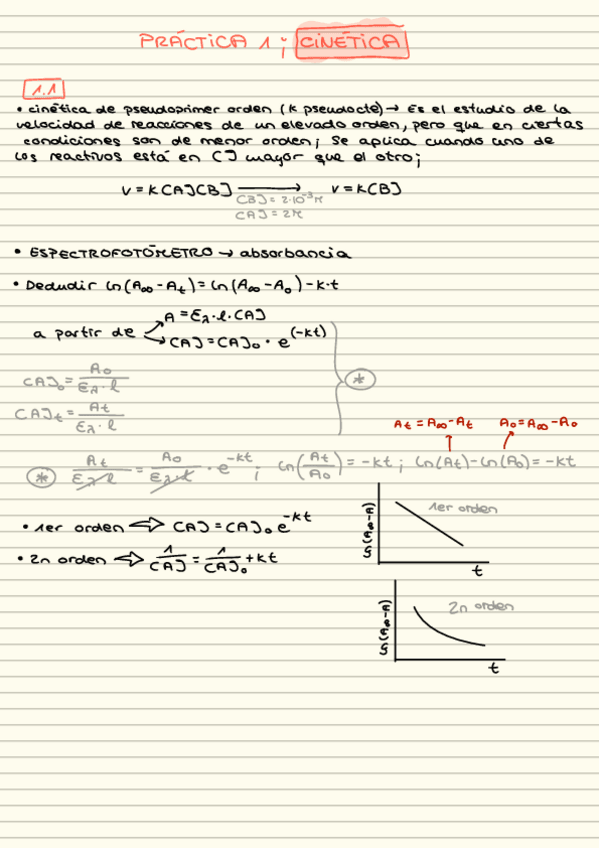 PRÁCTICA 1; CINÉTICA
1.1
• cinética de pseudoprimer orden (k pseudocte) → Es el estudio de la
velocidad de reacciones de un elevado orden, pero que en ciertas
condiciones son de menor orden; Se aplica cuando uno de
los reactivos está en [] mayor que el otro;
v = k[A][B] → v = k[B]
[B] = 2·10⁻³M
[A] = 2M
• ESPECTROFOTÓMETRO → absorbancia
• Dedudir ln(A∞ - At) = ln(A∞ - A₀) - k·t
a partir de
A = ελ·l·[A]
[A] = [A]₀ · e^(-kt)
[A]₀ = A₀ / ελ·l
[A]t = At / ελ·l
*
At = A∞ - At A₀ = A∞ - A₀
* At / ελ·l = A₀ / ελ·l · e^-kt ; ln(At/A₀) = -kt ; ln(At) - ln(A₀) = -kt
• 1er orden ⇔ [A] = [A]₀ e^-kt
• 2n orden ⇔ 1/[A] = 1/[A]₀ + kt
1er orden
t
2n orden
t